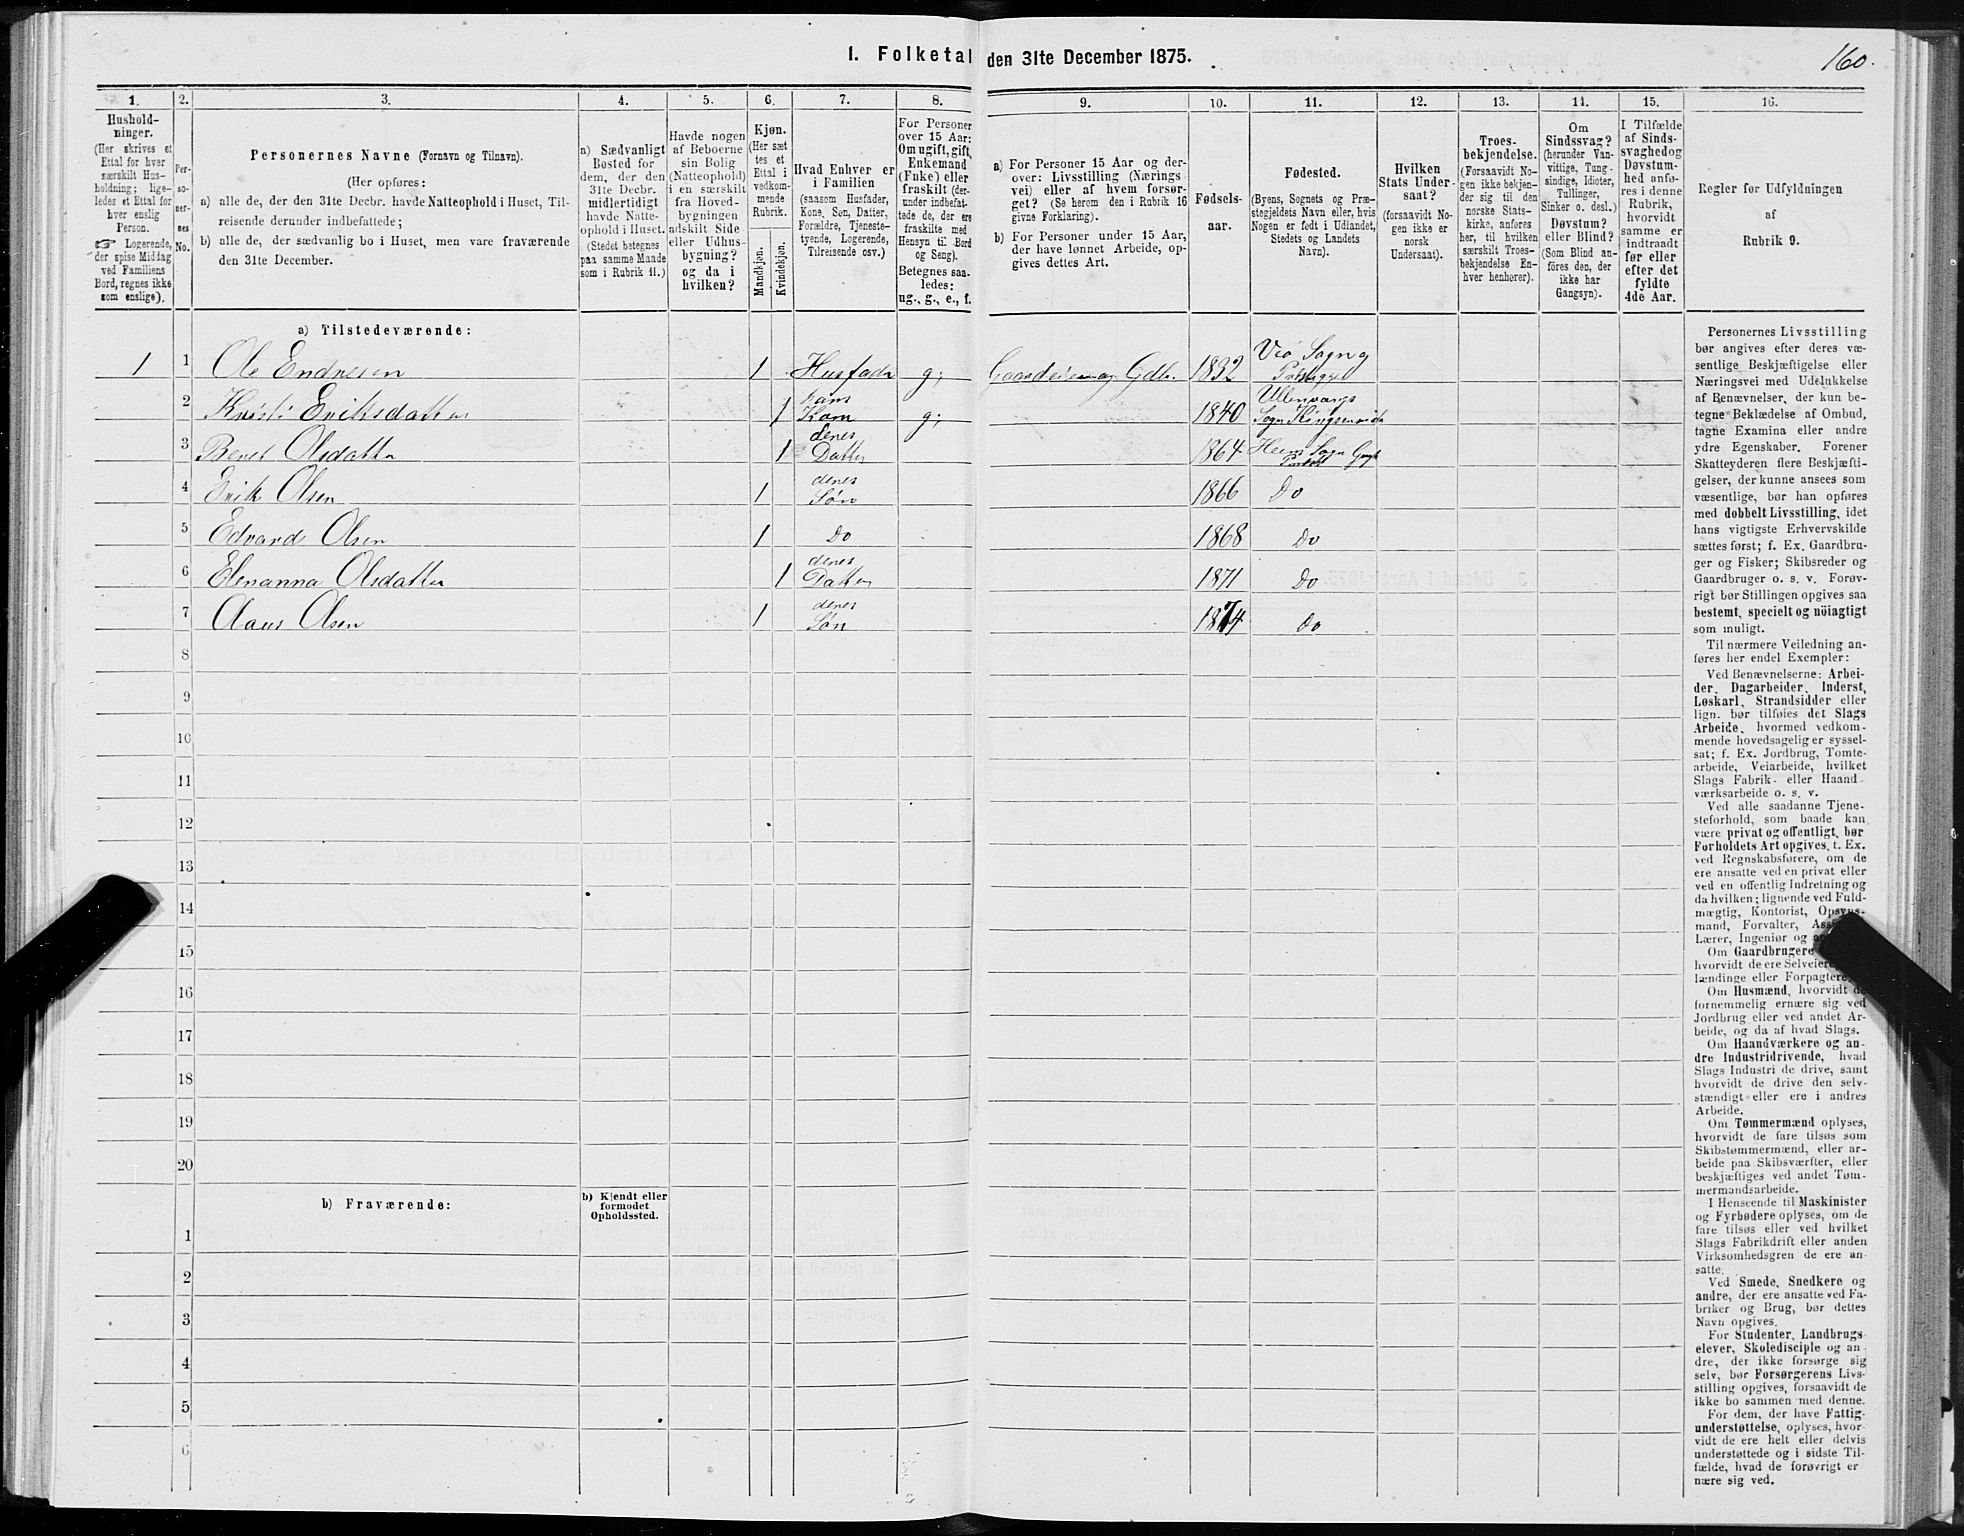 1. Folketal den 31te December 1875.
160.
1. 2. 3. 4. 5. 6. 7. 8. 9. 10. 11. 12. 13. 14. 15. 16.
Hushold-
ninger.
(Her skrives et
Ettal for hver
særskilt Hus-
holdning; lige-
ledes et Ettal for
hver enslig
Person.
☞ Logerende,
der spise Middag
ved Familiens
Bord, regnes ikke
som enslige).
Per-
so-
ner-
nes
No.
Personernes Navne (Fornavn og Tilnavn).
(Her opføres:
a) alle de, der den 31te Decbr. havde Natteophold i Huset, Til-
reisende derunder indbefattede;
b) alle de, der sædvanlig bo i Huset, men vare fraværende
den 31te December.
a) Sædvanligt
Bosted for
dem, der den
31te Decbr.
midlertidigt
havde Natte-
ophold i Huset.
(Stedet betegnes
paa samme Maade
som i Rubrik 11.)
Havde nogen
af Beboerne
sin Bolig
(Natteophold)
i en særskilt
fra Hoved-
bygningen
adskilt Side
eller Udhus-
bygning?
og da i
hvilken?
Kjøn.
(Her sæt
tes et
Ettal i
vedkom-
mende
Rubrik.
Mandkjøn.
Kvindekjøn.
Hvad Enhver er
i Familien
(saasom Husfader,
Kone, Søn, Datter,
Forældre, Tjeneste-
tyende, Logerende,
Tilreisende osv.)
For Personer
over 15 Aar:
Om ugift, gift,
Enkemand
(Enke) eller
fraskilt (der-
under indbefat-
tede de, der ere
fraskilte med
Hensyn til Bord
og Seng).
Betegnes saa-
ledes:
ug., g., e., f.
a) For Personer 15 Aar og der-
over: Livsstilling (Nærings
vei) eller af hvem forsør-
get? (Se herom den i Rubrik 16
givne Forklaring).
b) For Personer under 15 Aar,
der have lønnet Arbeide, op-
gives dettes Art.
Fødsels-
aar.
Fødested.
(Byens, Sognets og Præ-
stegjeldets Navn eller, hvis
Nogen er født i Udlandet,
Stedets og Landets
Navn).
Hvilken
Stats Under-
saat?
(forsaavidt No-
gen ikke er
norsk
Undersaat).
Troes-
bekjendelse.
(Forsaavidt No-
gen ikke bekjen-
der sig til den
norske Stats-
kirke, anføres
her, til hvilken
særskilt Troes-
bekjendelse En-
hver henhører).
Om
Sindssvag?
(herunder Van-
vittige, Tung-
sindige, Idioter,
Tullinger,
Sinker o. desl.)
Døvstum?
eller Blind?
(Som Blind an-
føres den, der
ikke har
Gangsyn).
I Tilfælde
af Sinds-
svaghed og
Døvstum-
hed anfø-
res i denne
Rubrik,
hvorvidt
samme er
indtraadt
før eller
efter det
fyldte
4de Aar.
Regler for Udfyldningen
af
Rubrik 9.
a) Tilstedeværende:
1 1 Ole Endresen 1 Husfader g; Gaardeier og Gdb. 1832 Veø Sogn og
2 Kristi Eriksdatter 1 hans Kone g; 1840 Ullensvangs Sogn Kingservik
3 Beret Olsdatter 1 deres Datter 1864 Hems Sogn
4 Erik Olsen 1 deres Søn 1866 Do
5 Edvard Olsen 1 Do 1868 Do
6 Elenanna Olsdatter 1 deres Datter 1871 Do
7 Claus Olsen 1 deres Søn 1874 Do
8
9
10
11
12
13
14
15
16
17
18
19
20
b) Fraværende:
b) Kjendt eller
formodet
Opholdssted.
1
2
3
4
5
6
Personernes Livsstilling
bør angives efter deres væ-
sentlige Beskjæftigelse eller
Næringsvei med Udelukkelse
af Benævnelser, der kun be-
tegne Beklædelse af Ombud,
tagne Examina eller andre
ydre Egenskaber. Forener
Skatteyderen flere Beskjæfti-
gelser, der kunne ansees som
væsentlige, bør han opføres
med dobbelt Livsstilling, idet
hans vigtigste Erhvervskilde
sættes først; f. Ex. Gaardbru-
ger og Fisker; Skibsreder og
Gaardbruger o. s. v. Forøv-
rigt bør Stillingen opgives saa
bestemt, specielt og nöiagtigt
som muligt.
Til nærmere Veiledning an-
føres her endel Exempler:
Ved Benævnelserne: Arbei-
der, Dagarbeider, Inderst,
Løskarl, Strandsidder eller
lign. bør tilføies det Slags
Arbeide, hvormed vedkom-
mende hovedsagelig er syssel-
sat; f. Ex. Jordbrug, Tomte-
arbeide, Veiarbeide, hvilket
Slags Fabrik- eller Haand-
værksarbeide o. s. v.
Ved alle saadanne Tjene-
steforhold, som baade kan
være privat og offentligt, bør
Forholdets Art opgives, t. Ex.
ved Regnskabsførere, om de
ere ansatte ved en privat eller
ved en offentlig Indretning og
da hvilken; lignende ved Fuld-
mægtig, Kontorist, Opsyns-
mand, Forvalter,
Lærer, Ingeniør og
Om Gaardbrugere
hvorvidt de ere Selveiere,
lændinge eller Forpagtere.
Om Husmænd, hvorvidt de
fornemmelig ernære sig ved
Jordbrug eller ved andet Ar-
beide, og da af hvad Slags.
Om Haandværkere og an-
dre Industridrivende, hvad
Slags Industri de drive, samt
hvorvidt de drive den selv-
stændigt eller ere i andres
Arbeide.
Om Tømmermænd oplyses,
hvorvidt de fare tilsøs som
Skibstømmermænd, eller ar-
beide paa Skibsværfter, eller
beskjæftiges ved andet Tøm-
mermandsarbeide.
I Henseende til Maskinister
og Fyrbødere oplyses, om de
fare tilsøs eller ved hvilket
Slags Fabrikdrift eller anden
Virksomhedsgren de ere an-
satte.
Ved Smede, Snedkere og
andre, der ere ansatte ved Fa-
briker og Brug, bør dettes
Navn opgives.
For Studenter, Landbrugs
elever, Skoledisciple og an-
dre, der ikke forsørge sig
selv, bør Forsørgerens Livs-
stilling opgives, forsaavidt de
ikke bo sammen med denne.
For dem, der have Fattig-
understøttelse, oplyses, hvor-
vidt de ere helt eller delvis
understøttede og i sidste Til-
fælde, hvad de forøvrigt er
nære sig ved.